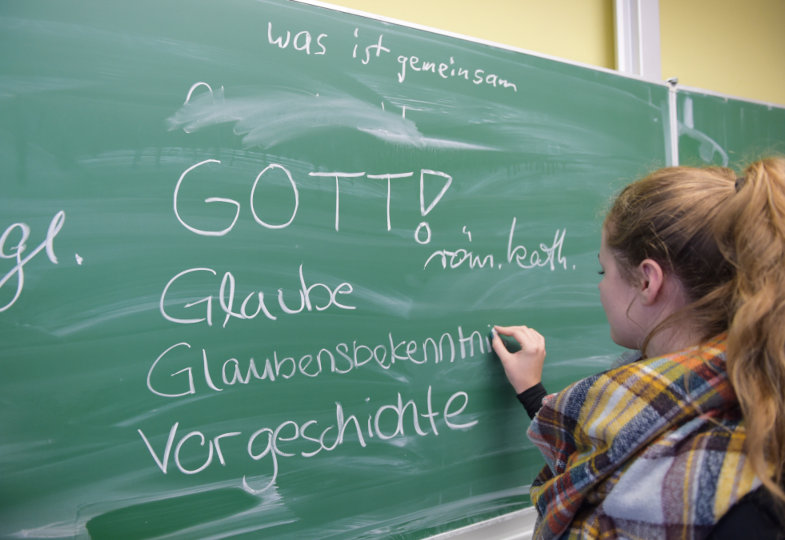 was ist gemeinsam
GOTT!
röm. kath.
gl.
Glaube
Glaubensbekenntni
Vorgeschichte